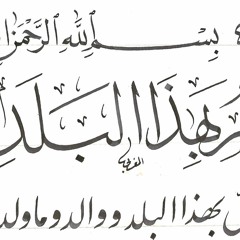 بِسْمِ اللهِ الرَّحْمٰنِ
بِهَذَا الْبَلَدِ
بهذا البلد ووالد وما ولد